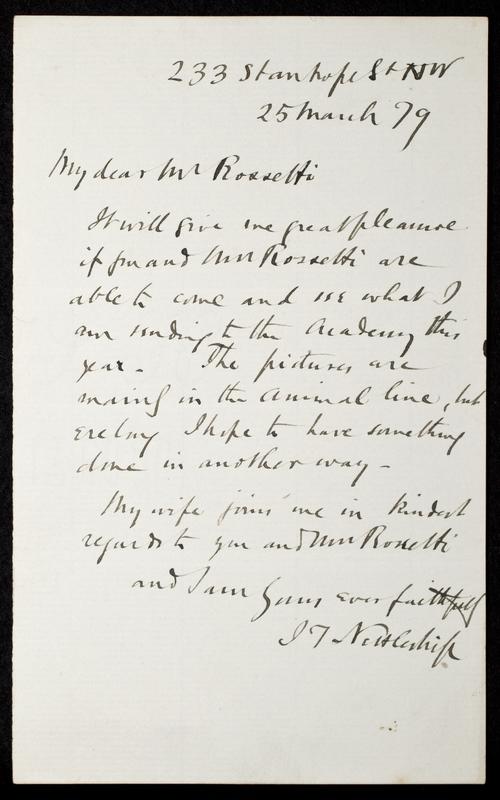 233 Stanhope St NW
25 March 79
My dear Mr Rossetti
It will give me great pleasure
if you and Mrs Rossetti are
able to come and see what I
am sending to the Academy this
year. The pictures are
mainly in the animal line, but
ere long I hope to have something
done in another way.
My wife joins me in kindest
regards to you and Mrs Rossetti
and I am Yours ever faithfully
J T Nettleship